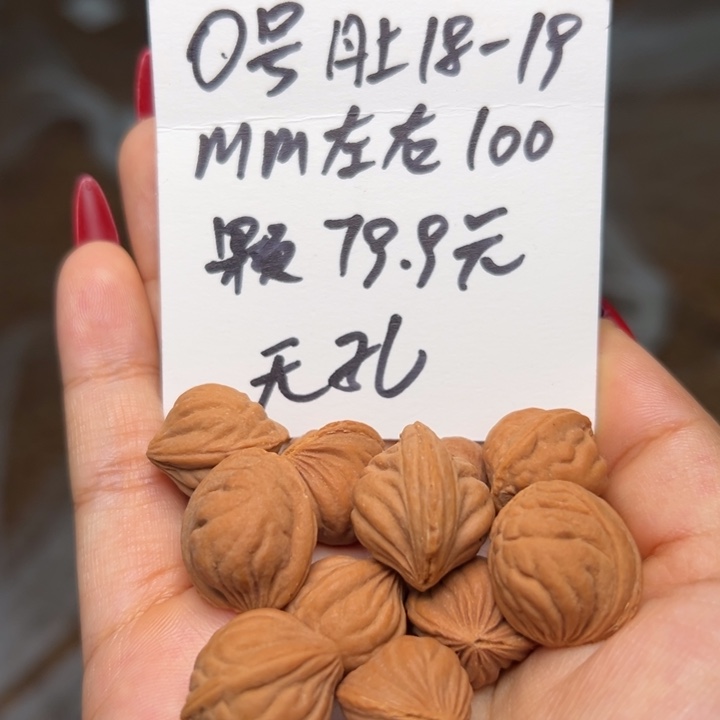 0号肚18-19
mm左右100
颗79.9元
无孔